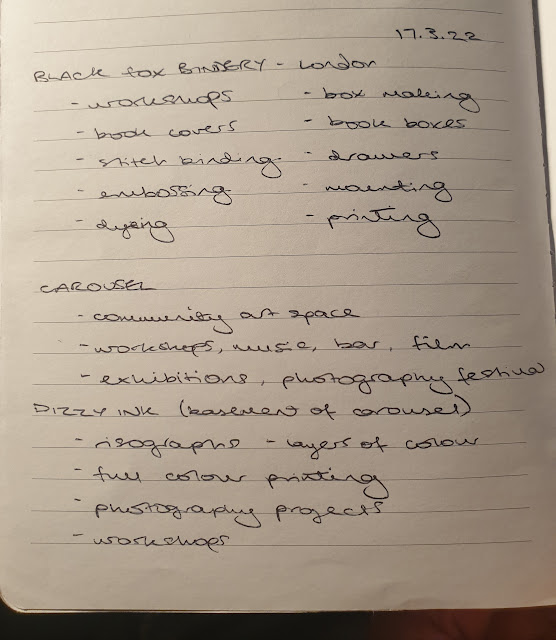 17.3.22
BLACK FOX BINDERY - London
- workshops - box making
- book covers - book boxes
- stitch binding - drawers
- embossing - mounting
- dyeing - printing
CAROUSEL
- community art space
- workshops, music, bar, film
- exhibitions, photography festival
DIZZY INK (basement of carousel)
- risographs - layers of colour
- full colour printing
- photography projects
- workshops